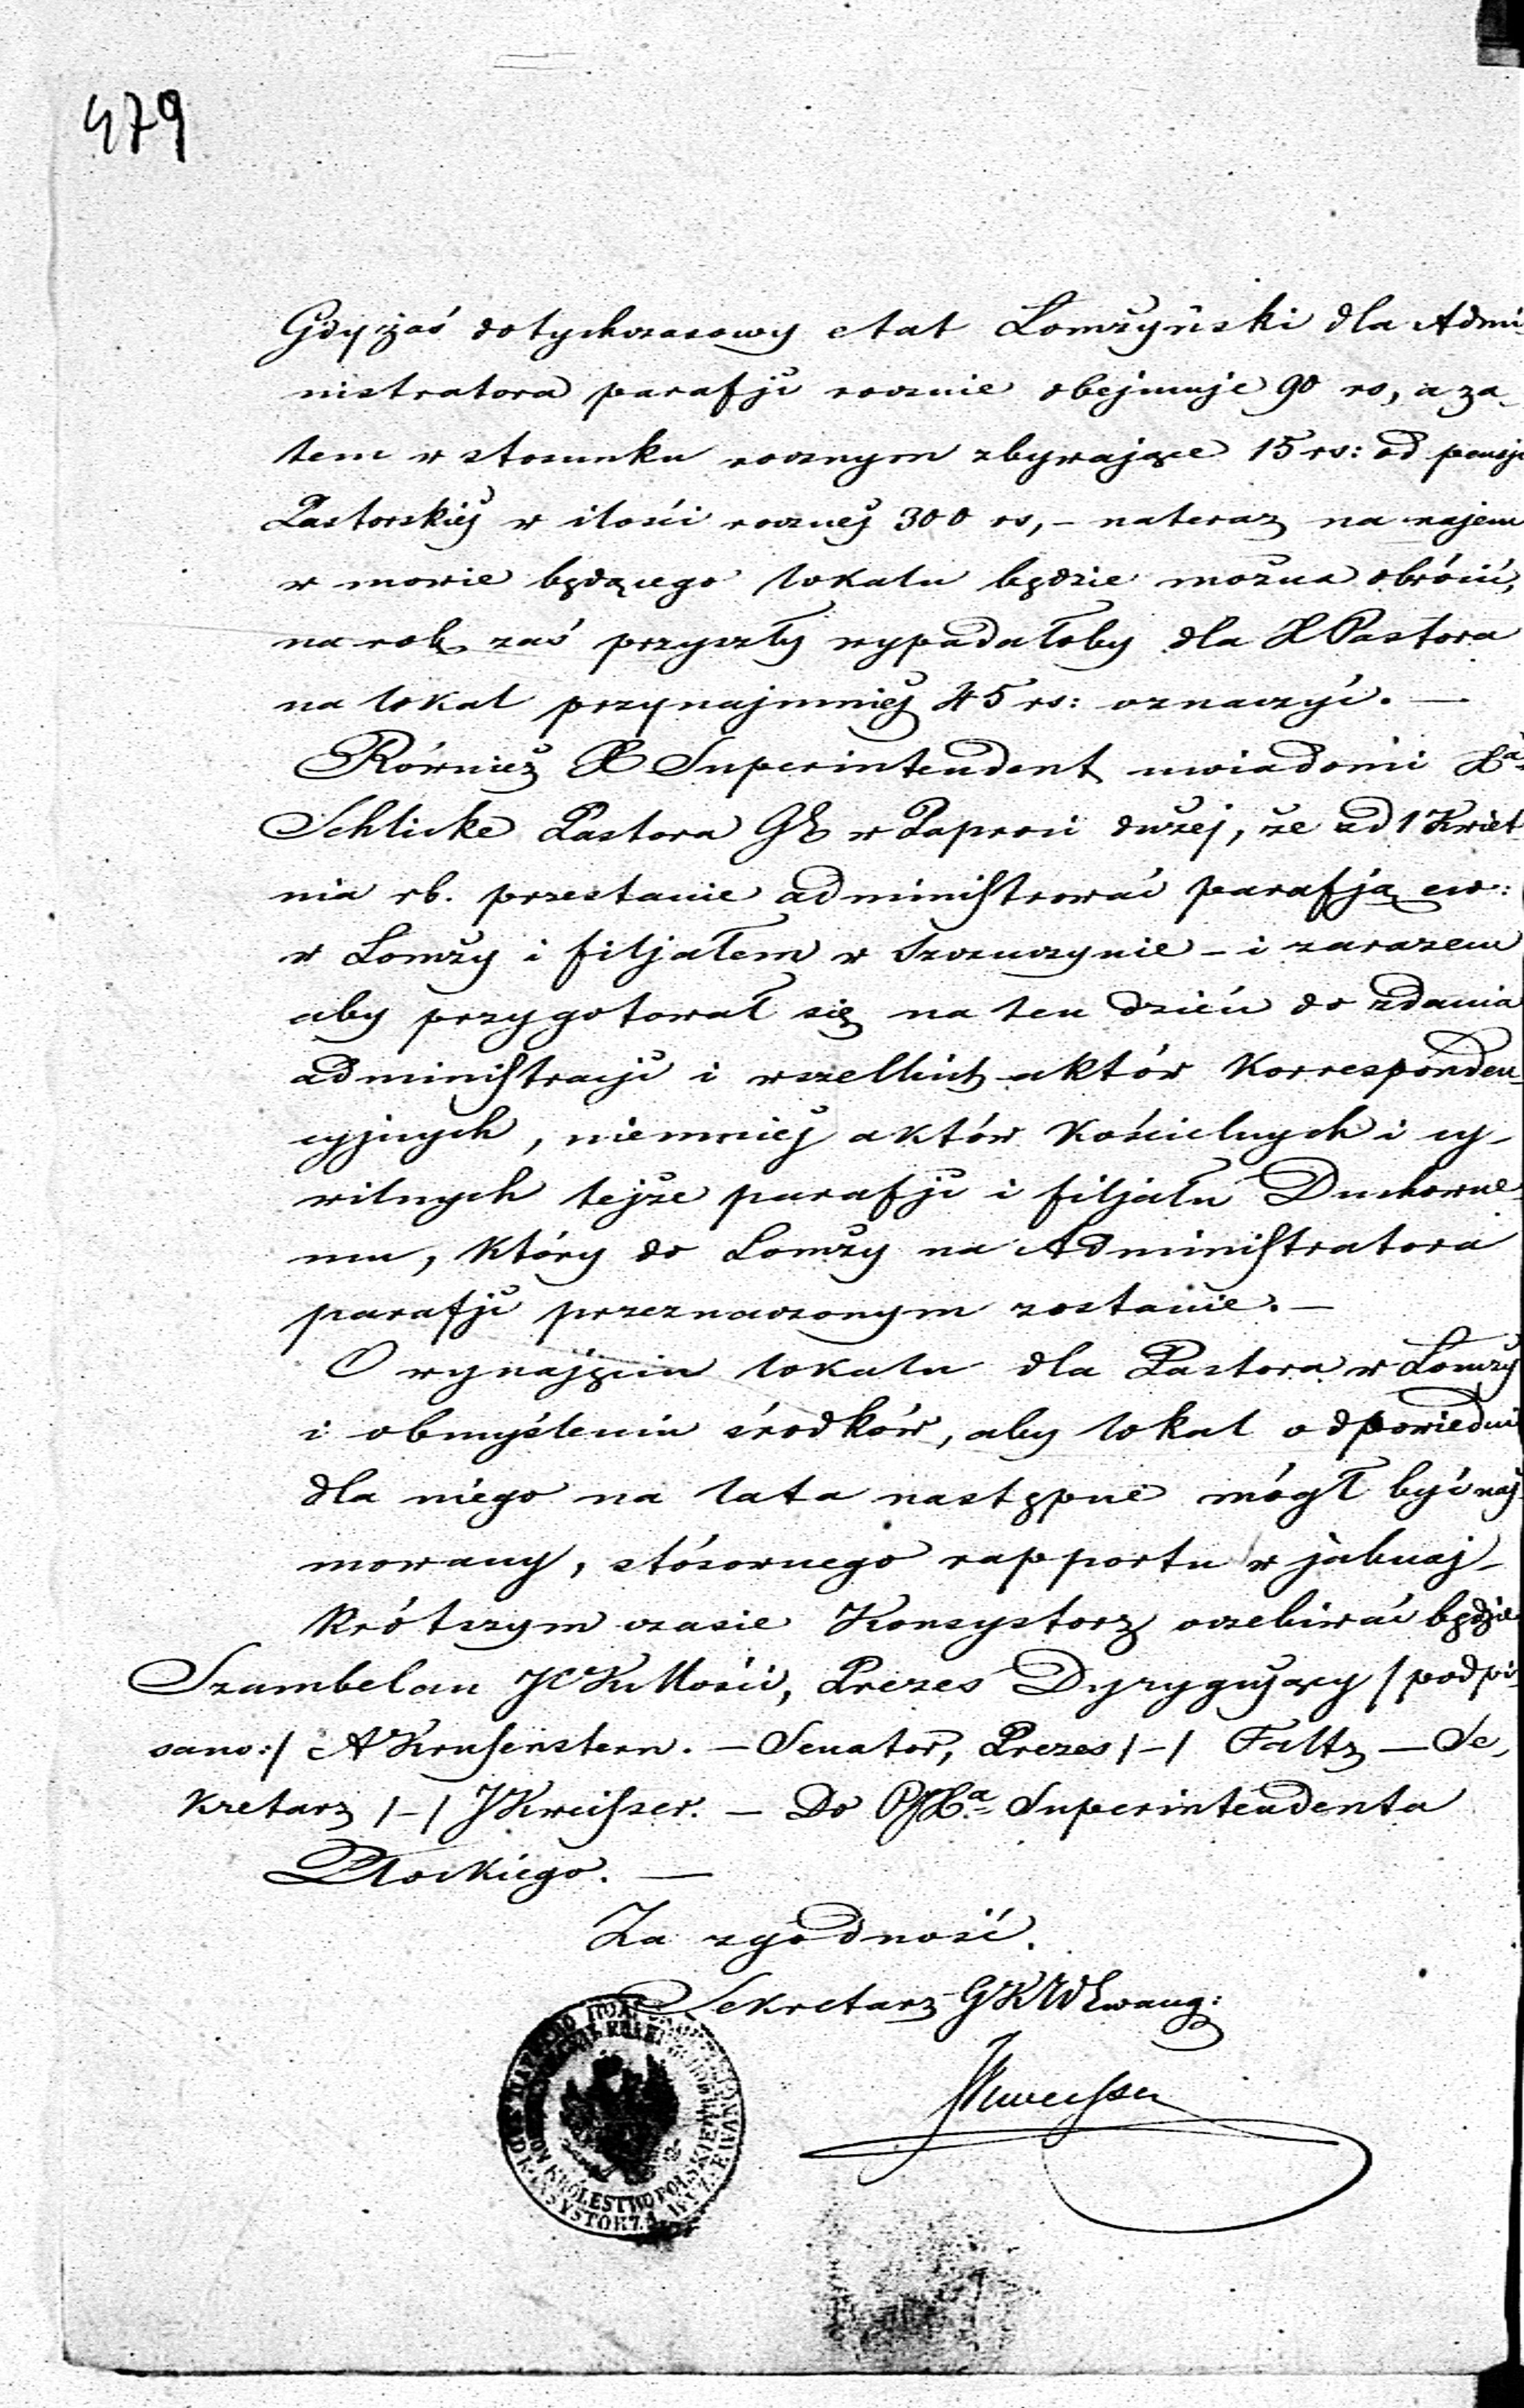 479
Gdy zaś dotychczasowy etat Łomżyński dla Admi-
nistratora parafji rocznie obejmuje 90 rs, a za-
tem w stosunku rocznym zbywające 15 rs: od pensji
Pastorskiej w ilości rocznej 300 rs, – nateraz na najem
w mowie będącego lokalu będzie można obrócić,
na rok zaś przyszły wypadałoby dla X Pastora
na lokal przynajmniej 45 rs: oznaczyć. —
Również X Superintendent uwiadomi Xa
Schlicke Pastora w Paproci dużej, że od 1 Kwiet-
nia rb. przestanie administrować parafją ew:
w Łomży i filjałem w Szczuczynie – i zarazem
aby przygotował się na ten dzień do zdania
administracji i wszelkich aktów Korresponden-
cyjnych, niemniej aktów Kościelnych i cy-
wilnych tejże parafji i filjału Duchowne-
mu, który do Łomży na Administratora
parafji przeznaczonym zostanie. —
O wynajęciu lokalu dla Pastora w Łomży
i obmyśleniu środków, aby lokal odpowiedni
dla niego na lata następne mógł być naj-
mowany, stósownego rapportu w jaknaj-
krótszym czasie Konsystorz oczekiwać będzie
Szambelan JCKMości, Prezes Dyrygujący /podpi-
sano:/ A Krusenstern. — Senator, Prezes /–/ Faltz — Se-
kretarz /–/ J Kweisser. — Do Xa Superintendenta
Płockiego. —
Za zgodność.
Sekretarz GKW Ewang:
JKweisser
KRÓLESTWO POLSKIEM